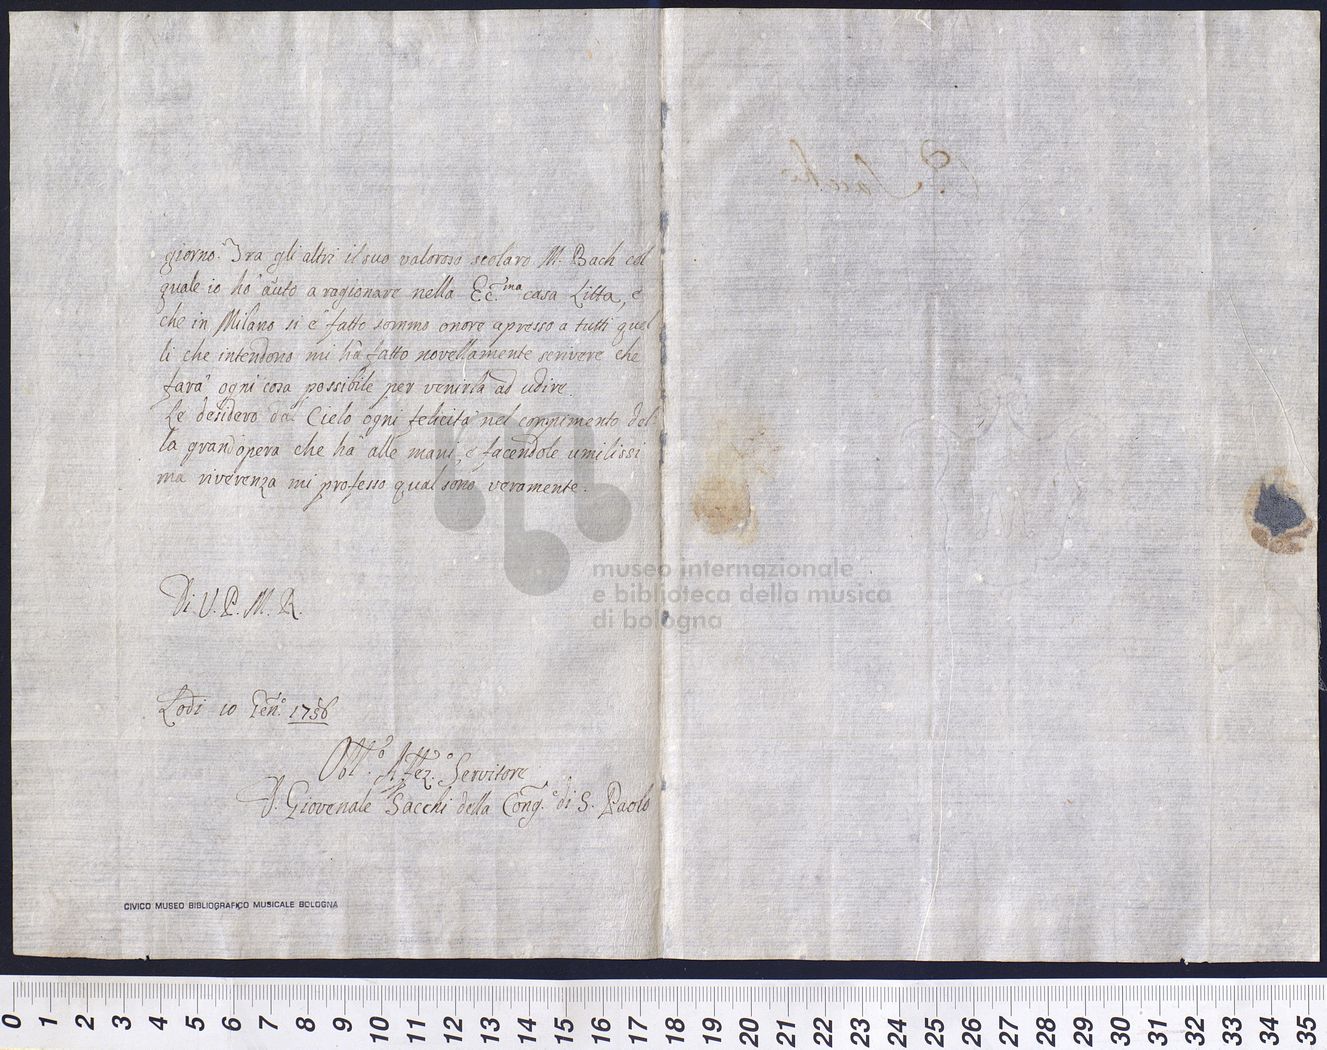 giorno. Tra gli altri il suo valoroso scolaro M. Bach col
quale io hò auto a ragionare nella Ec.ma casa Litta, e
che in Milano si è fatto sommo onore apresso a tutti quel
li che intendono mi hà fatto novellamente scrivere che
farà ogni cosa possibile per venirla ad udire.
Le desidero dal Cielo ogni felicità nel compimento del
la grand'opera che hà alle mani, e facendole umilissi
ma riverenza mi professo qual sono veramente.
Di V. P. M. R.
Lodi 10 Gen.o 1756
Obbl.o Affez.o Servitore
D. Giovenale Sacchi della Cong.e di S. Paolo
P. Sacchi
museo internazionale
e biblioteca della musica
di bologna
CIVICO MUSEO BIBLIOGRAFICO MUSICALE BOLOGNA
0 1 2 3 4 5 6 7 8 9 10 11 12 13 14 15 16 17 18 19 20 21 22 23 24 25 26 27 28 29 30 31 32 33 34 35